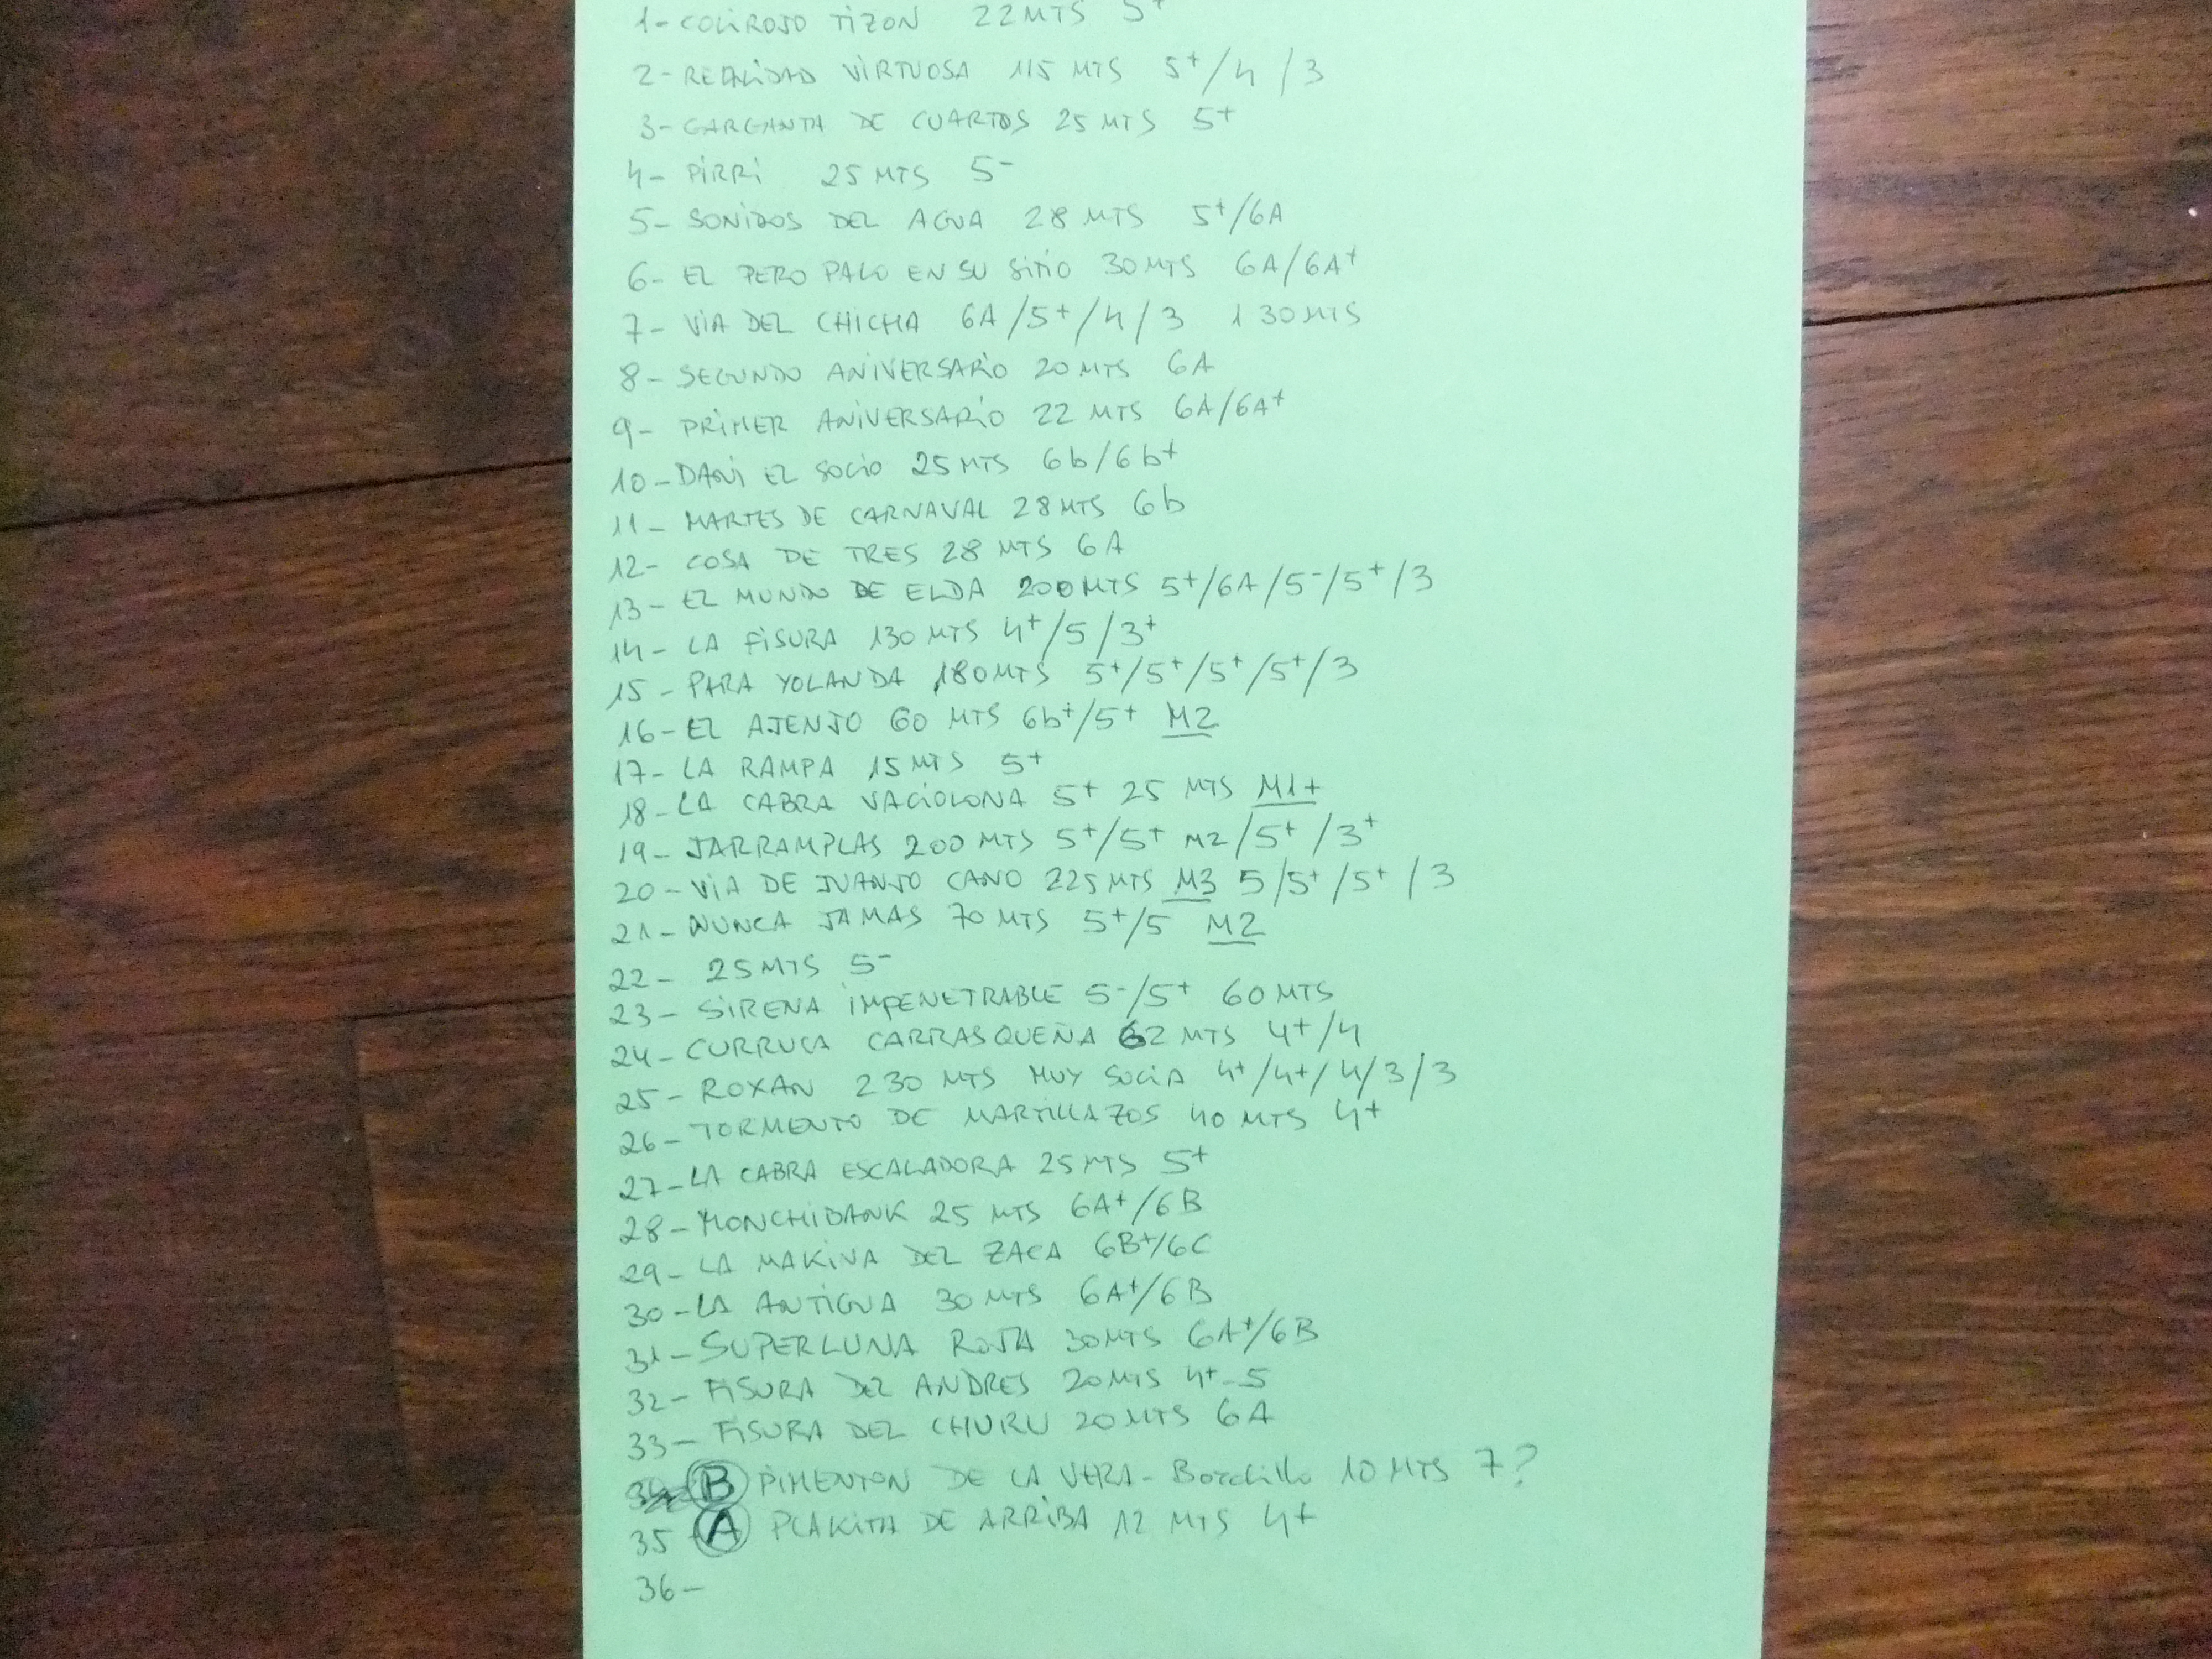 1- COLIROJO TIZON 22 MTS 5+
2- REALIDAD VIRTUOSA 115 MTS 5+/4/3
3- GARGANTA DE CUARTOS 25 MTS 5+
4- PIRRI 25 MTS 5-
5- SONIDOS DEL AGUA 28 MTS 5+/6A
6- EL PERO PALO EN SU SITIO 30 MTS 6A/6A+
7- VIA DEL CHICHA 6A/5+/4/3 130 MTS
8- SEGUNDO ANIVERSARIO 20 MTS 6A
9- PRIMER ANIVERSARIO 22 MTS 6A/6A+
10- DANI EL SOCIO 25 MTS 6b/6b+
11- MARTES DE CARNAVAL 28 MTS 6b
12- COSA DE TRES 28 MTS 6A
13- EL MUNDO DE ELDA 200 MTS 5+/6A/5-/5+/3
14- LA FISURA 130 MTS 4+/5/3+
15- PARA YOLANDA 180 MTS 5+/5+/5+/5+/3
16- EL AJENJO 60 MTS 6b+/5+ M2
17- LA RAMPA 15 MTS 5+
18- LA CABRA VACIOLONA 5+ 25 MTS M1+
19- JARRAMPLAS 200 MTS 5+/5+ M2/5+/3+
20- VIA DE JUANJO CANO 225 MTS M3 5/5+/5+/3
21- NUNCA JAMAS 70 MTS 5+/5 M2
22- 25 MTS 5-
23- SIRENA IMPENETRABLE 5-/5+ 60 MTS
24- CURRUCA CARRASQUEÑA 62 MTS 4+/4
25- ROXAN 230 MTS MUY SUCIA 4+/4+/4/3/3
26- TORMENTO DE MARTILLAZOS 40 MTS 4+
27- LA CABRA ESCALADORA 25 MTS 5+
28- MONCHIBANK 25 MTS 6A+/6B
29- LA MAKINA DEL ZACA 6B+/6C
30- LA ANTIGUA 30 MTS 6A+/6B
31- SUPERLUNA ROJA 30 MTS 6A+/6B
32- FISURA DEL ANDRES 20 MTS 4+-5
33- FISURA DEL CHURU 20 MTS 6A
34 B PIMENTON DE LA VERA - Bordillo 10 MTS 7?
35 A PLAKITA DE ARRIBA 12 MTS 4+
36-